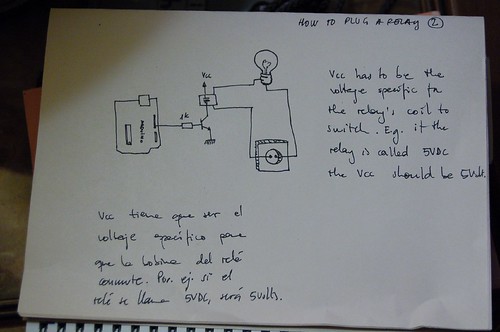 HOW TO PLUG A RELAY 2
Vcc
1k
Arduino
Vcc has to be the
voltage specific for
the relay's coil to
switch. Eg. if the
relay is called 5VDC
the Vcc should be 5Volt.
Vcc tiene que ser el
voltaje específico para
que la bobina del relé
conmute. Por ej. si el
relé se llama 5VDC, será 5Volts.